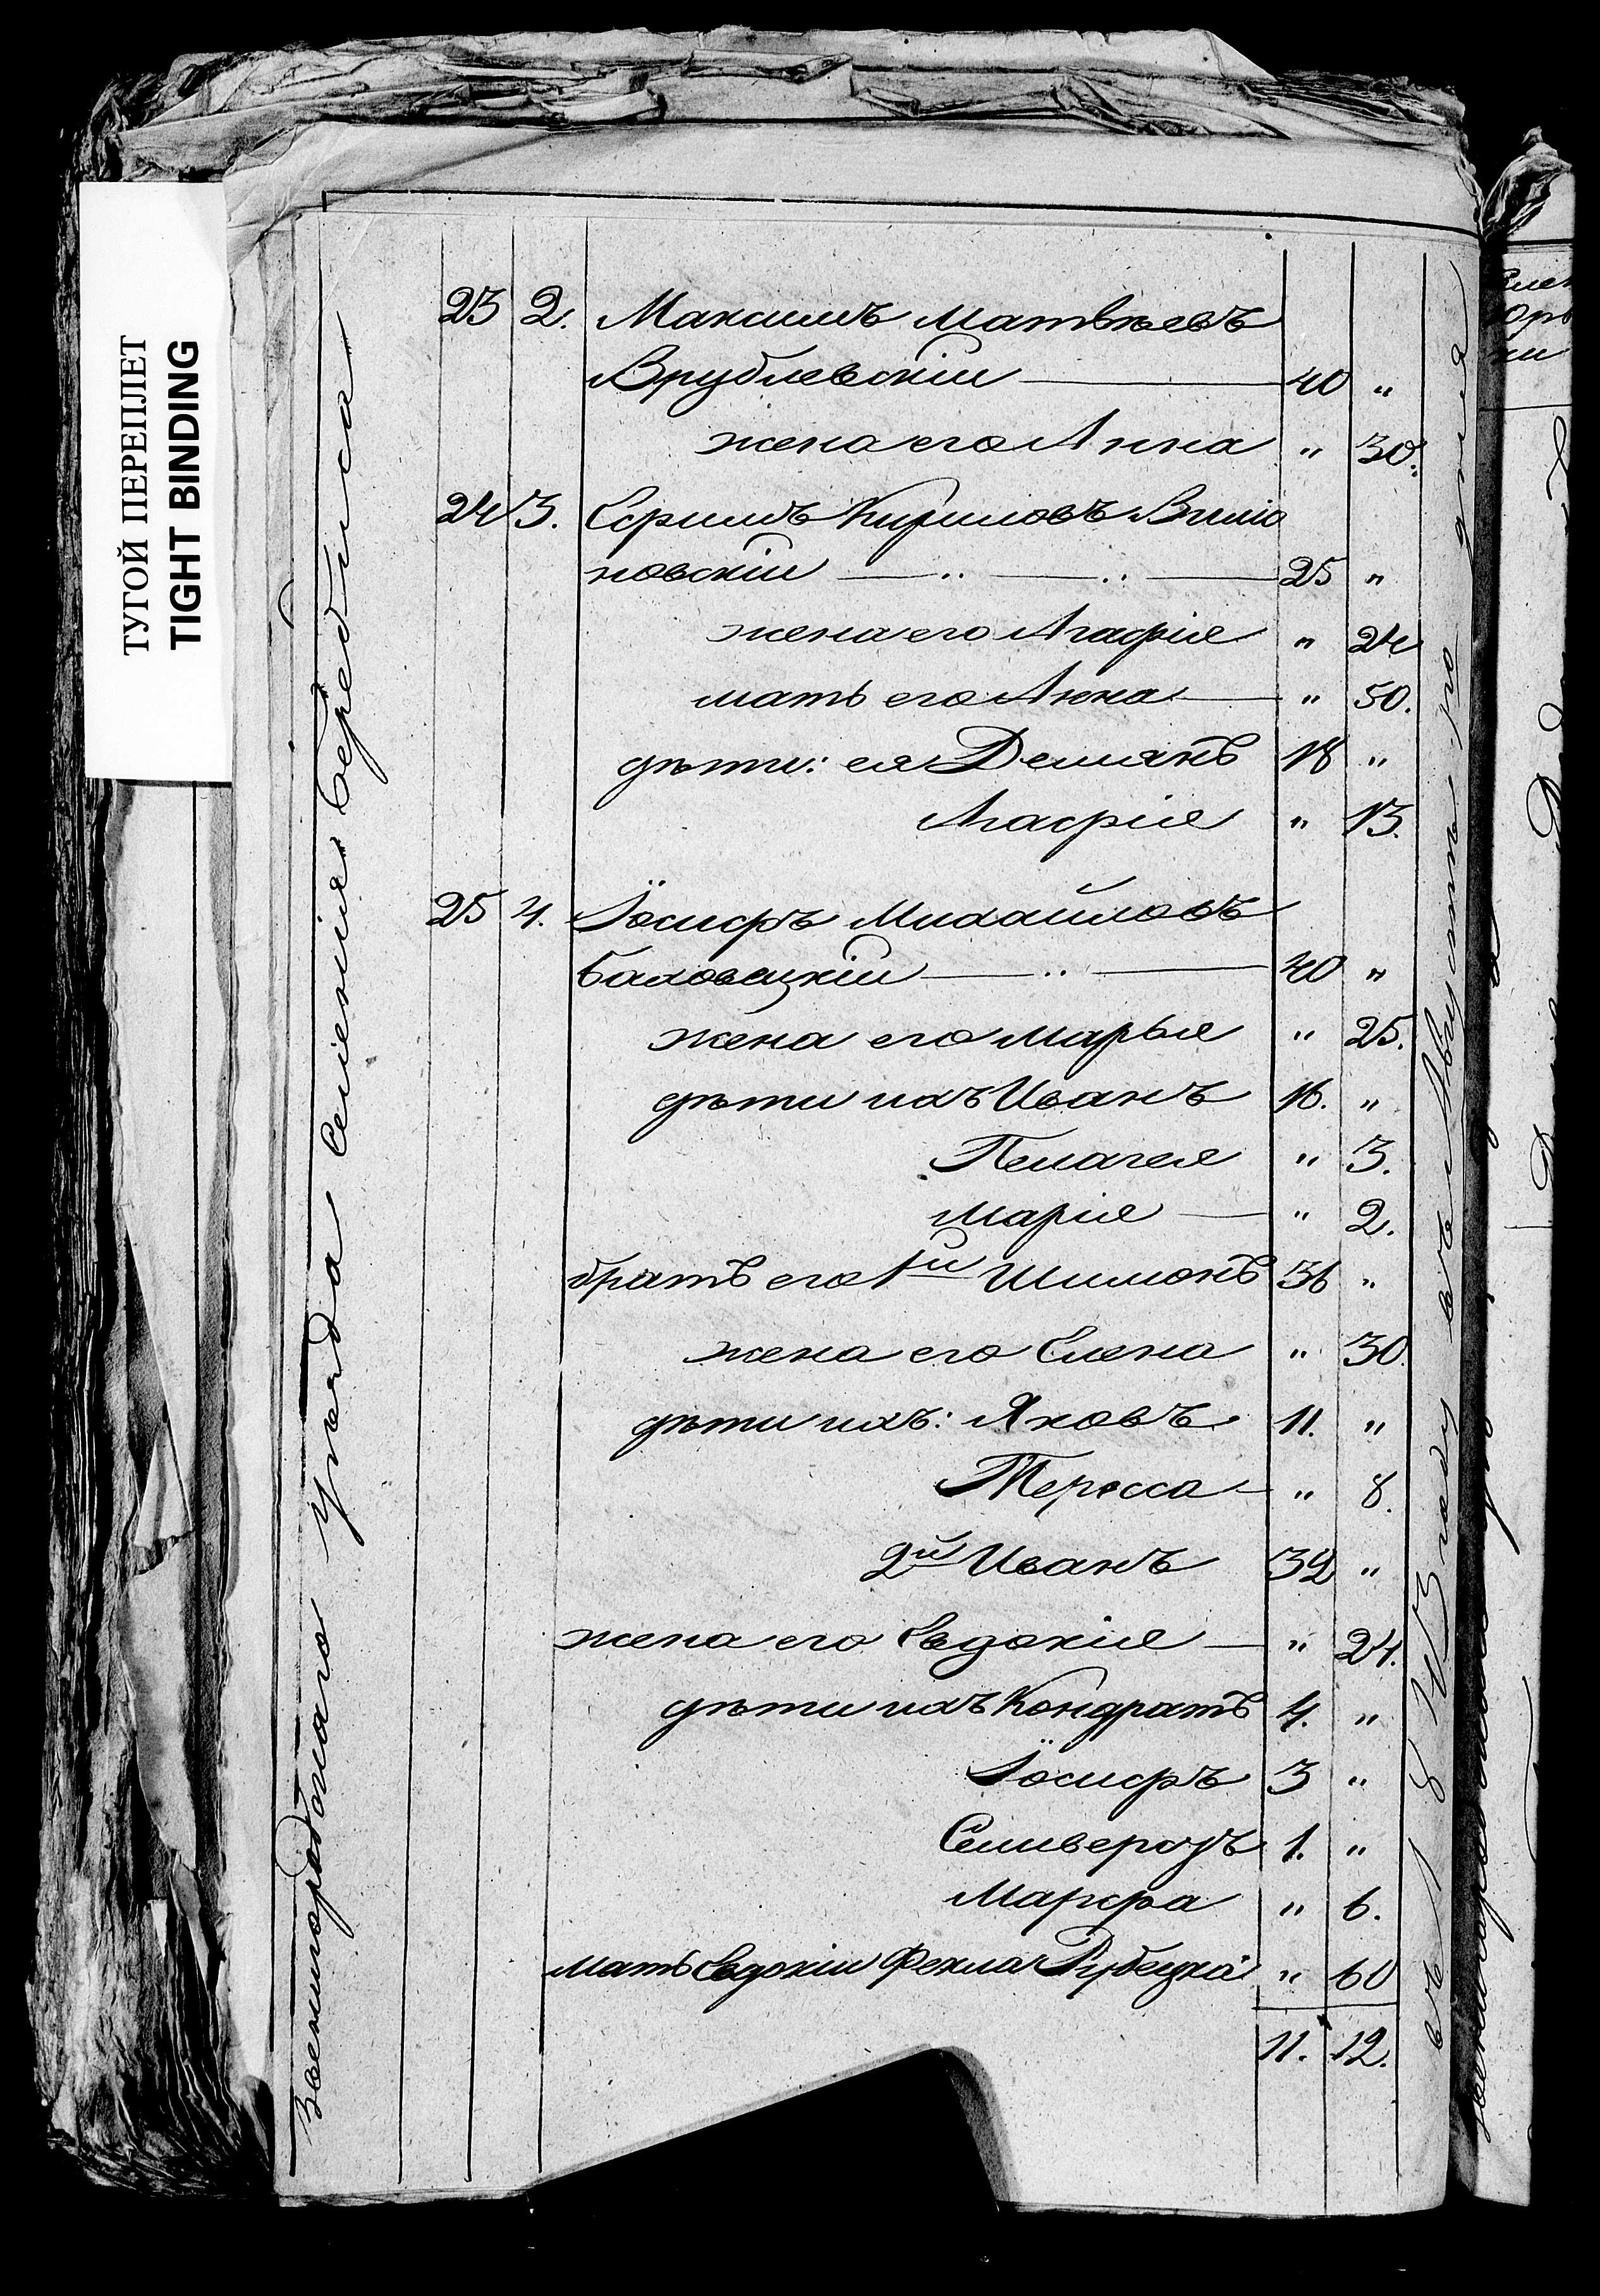 ТУГОЙ ПЕРЕПЛЕТ
TIGHT BINDING
Звенигородскаго уѣзда Селенія
23 2. Максимъ Матвѣевъ
Врублевскій 40 "
жена его Анна " 30.
24 3. Ефимъ Кириловъ
новскій 25 "
жена его Агафія " 24
мать его Анна " 50.
дѣти: ея Демянъ 18 "
Агафія " 13.
25 4. Іосифъ Михайловъ
40 "
жена его Марья " 25.
дѣти ихъ Иванъ 16. "
Пелагея " 3.
Марія " 2.
братъ его 1й Шимонъ 36 "
жена его Елена " 30.
дѣти ихъ: Яковъ 11. "
Тересса " 8.
2й Иванъ 32 "
жена его Евдокія " 24.
дѣти ихъ Кондратъ 4. "
Іосифъ 3 "
Селиверстъ 1. "
Марфа " 6.
мать Евдокіи Фекла " 60
11. 12.
году въ Августѣ дня